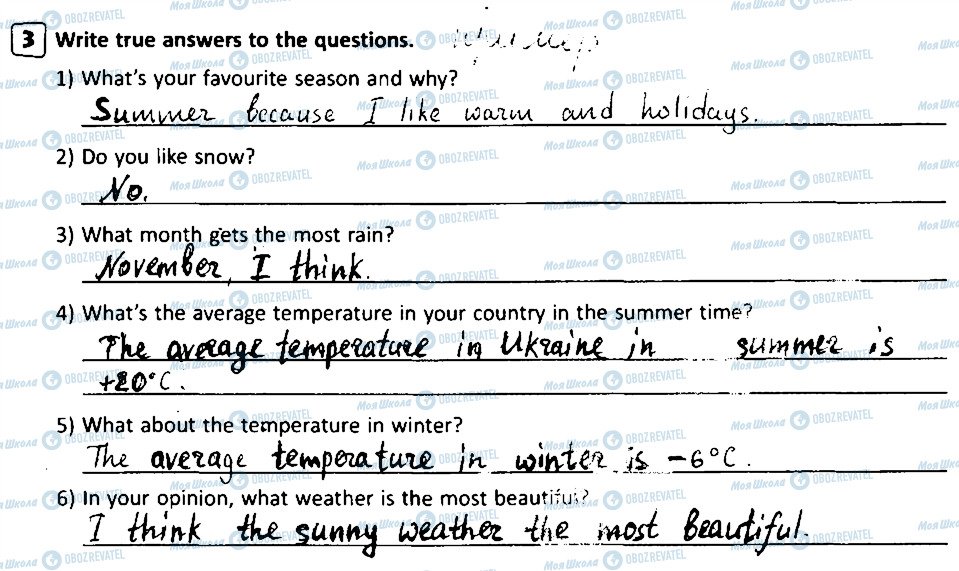 3 Write true answers to the questions.
1) What's your favourite season and why?
Summer because I like warm and holidays.
2) Do you like snow?
No.
3) What month gets the most rain?
November, I think.
4) What's the average temperature in your country in the summer time?
The average temperature in Ukraine in summer is
+20°C.
5) What about the temperature in winter?
The average temperature in winter is -6°C.
6) In your opinion, what weather is the most beautiful?
I think the sunny weather the most beautiful.
Моя Школа OBOZREVATEL